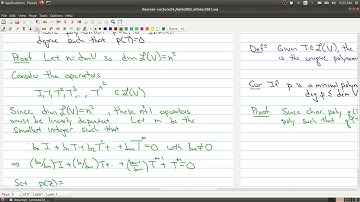 Applications Places
9:25 AM
Xournal - Lecture24_Math2R03_Winter2021.xoj
degree such that p(T)=0
Proof Let n=dim V so dim L(V)=n²
Consider the operators
I, T, T², T³, ..., T^{n²} ∈ L(V)
Since dim L(V)=n², these n²+1 operators
must be linearly dependent. Let m be the
smallest integer such that
b₀I + b₁T + b₂T² + ... + b_mT^m = 0 with b_m≠0
⇒ (b₀/b_m)I + (b₁/b_m)T + ... + (b_{m-1}/b_m)T^{m-1} + T^m = 0
Set p(z)=
Def: Given T∈L(V), the
is the unique polynom
Cor If p is a minimal polyn
deg p ≤ dim V
Proof Since char. poly q(
poly such that q(